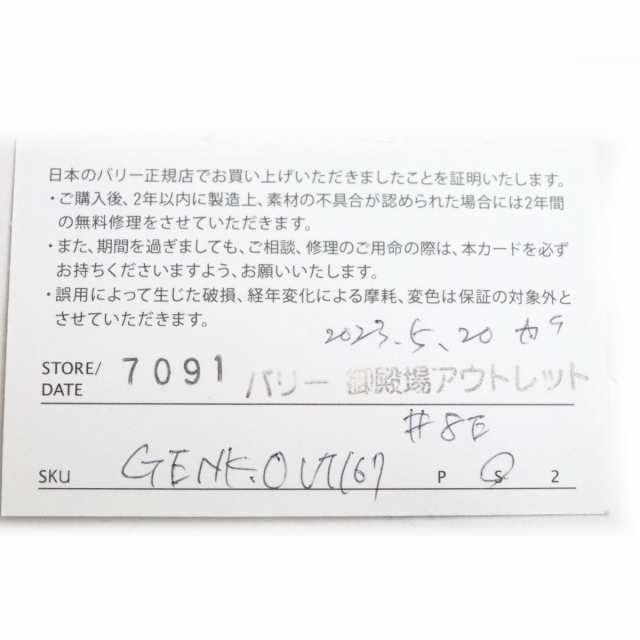 日本のバリー正規店でお買い上げいただきましたことを証明いたします。
・ご購入後、2年以内に製造上、素材の不具合が認められた場合には2年間
の無料修理をさせていただきます。
・また、期間を過ぎましても、ご相談、修理のご用命の際は、本カードを必ず
お持ちくださいますよう、お願いいたします。
・誤用によって生じた破損、経年変化による摩耗、変色は保証の対象外と
させていただきます。
2023.5.20
STORE/ 7091 バリー 御殿場アウトレット
DATE
#8E
SKU GENK.OUT(67) P S 2